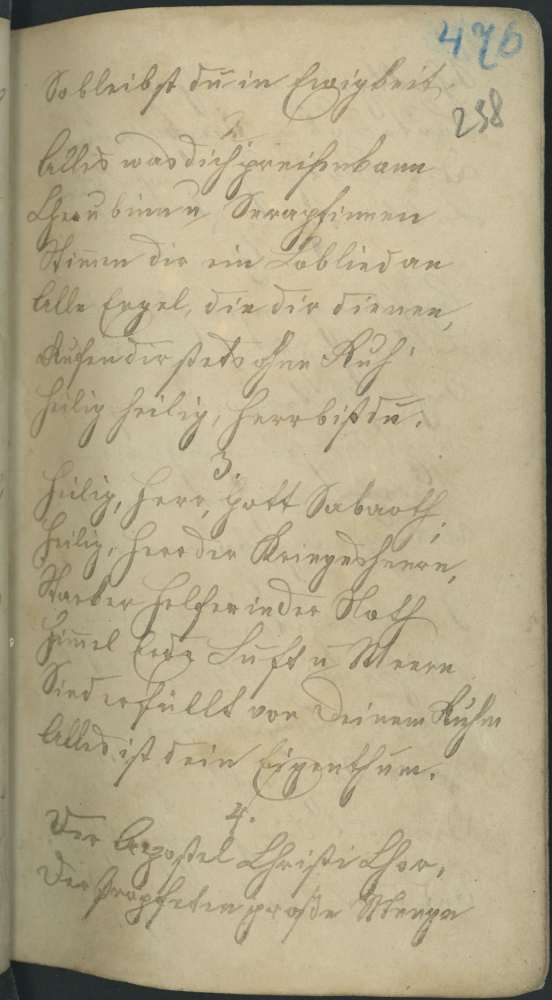 476
So bleibst du in Ewigkeit.
258
2.
Alles was dich preisen kann
Cherubinen u Seraphinnen
Stimmen dir ein Loblied an
Alle Engel, die dir dienen,
Rufen dir stets ohne Ruh'
Heilig heilig, Herr bist du.
3.
Heilig, Herr, Gott Sabaoth,
Heilig, Herr der Kriegesheere,
Starker Helfer in der Noth
Himmel Erde Luft u Meere
Sind erfüllt von Deinem Ruhm
Alles ist dein Eigenthum.
4.
Der Apostel Christi Chor,
Der Propheten große Menge